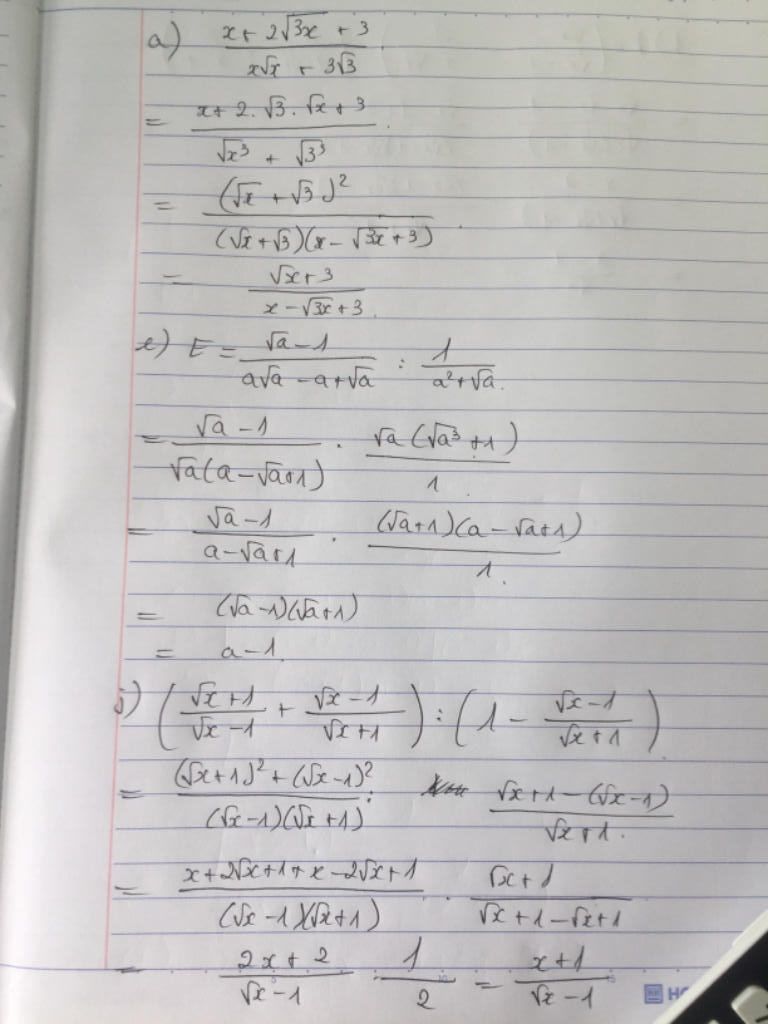 a) (x + 2√(3x) + 3)/(x√x + 3√3)
= (x + 2 . √3 . √x + 3)/(√x³ + √3³)
= (√x + √3)²/((√x + √3)(x - √3x + 3))
= (√x + 3)/(x - √3x + 3)
e) E = (√a - 1)/(a√a - a + √a) : 1/(a² + √a)
= (√a - 1)/(√a(a - √a + 1)) . √a(√a³ + 1)/1
= (√a - 1)/(a - √a + 1) . (√a + 1)(a - √a + 1)/1
= (√a - 1)(√a + 1)
= a - 1
j) ((√x + 1)/(√x - 1) + (√x - 1)/(√x + 1)) : (1 - (√x - 1)/(√x + 1))
= ((√x + 1)² + (√x - 1)²)/((√x - 1)(√x + 1)) : (√x + 1 - (√x - 1))/(√x + 1)
= (x + 2√x + 1 + x - 2√x + 1)/((√x - 1)(√x + 1)) . (√x + 1)/(√x + 1 - √x + 1)
= (2x + 2)/(√x - 1) . 1/2 = (x + 1)/(√x - 1)